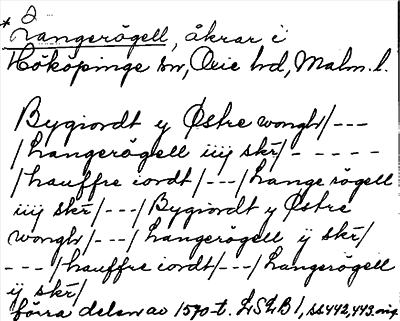 2
*Langerögell, åkrar i
Hököpinge sn, Oxie hd, Malm. l.
Bygiordt y Østre wongh/---
/Langerögell iiij skr̄/- - - - -
/hauffre iordt/---/Lange rögell
iiij skr̄/---/Bygiordt y Østre
wongh/---/Langerögell ij skr̄/
---/hauffre iordt/---/Langerögell
ij skr̄/
förra delen av 1570-t. LSLB 1, ss 442, 443.